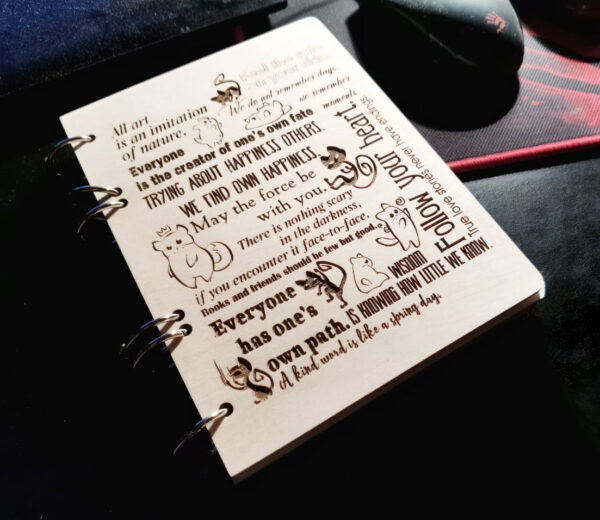 Feel the rain
on your skin
All art
is an imitation
of nature.
We do not remember days,
we remember
moments.
Everyone
is the creator of one's own fate
TRYING ABOUT HAPPINESS OTHERS,
WE FIND OWN HAPPINESS
May the force be
with you.
There is nothing scary
in the darkness,
if you encounter it face-to-face.
Books and friends should be few but good.
Everyone
has one's
own path.
WISDOM
IS KNOWING HOW LITTLE WE KNOW.
A kind word is like a spring day.
Follow your heart
True love stories never have endings